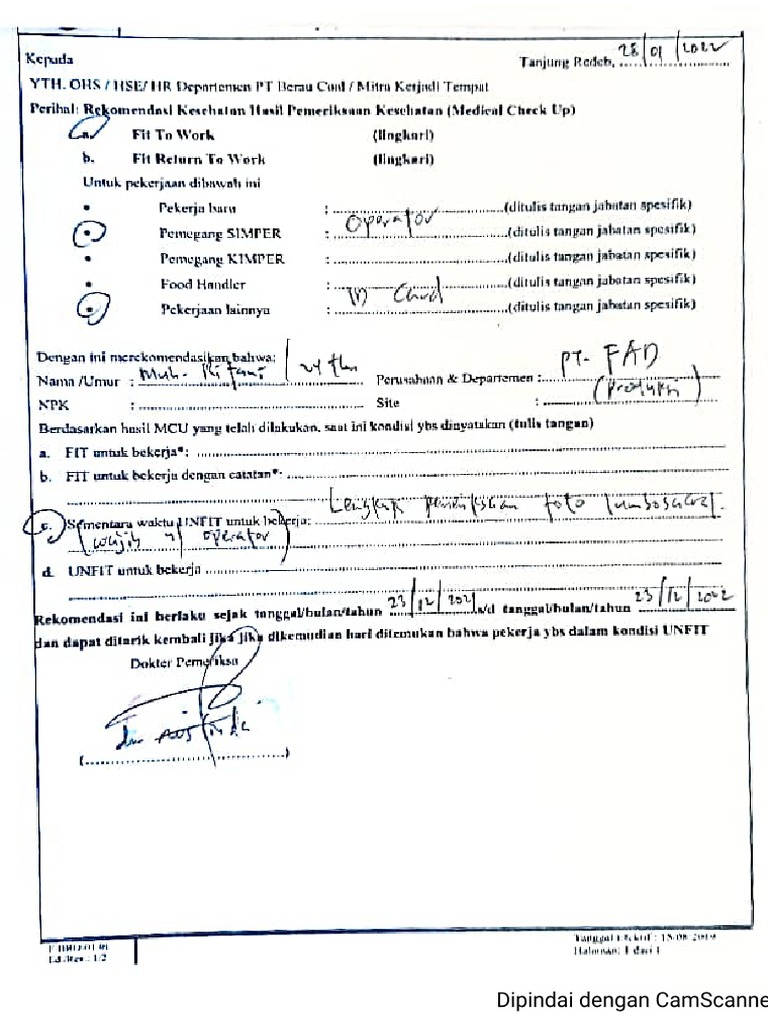 Kepada
Tanjung Redeb, 28/01/2022
YTH. OHS / HSE/ HR Departemen PT Berau Coal / Mitra Kerjadi Tempat
Perihal: Rekomendasi Kesehatan Hasil Pemeriksaan Kesehatan (Medical Check Up)
a. Fit To Work (lingkari)
b. Fit Return To Work (lingkari)
Untuk pekerjaan dibawah ini
• Pekerja baru : (ditulis tangan jabatan spesifik)
• Pemegang SIMPER : Operator (ditulis tangan jabatan spesifik)
• Pemegang KIMPER : (ditulis tangan jabatan spesifik)
• Food Handler : (ditulis tangan jabatan spesifik)
• Pekerjaan lainnya : ID Card (ditulis tangan jabatan spesifik)
Dengan ini merekomendasikan bahwa:
Nama /Umur : Muh. / 24 thn Perusahaan & Departemen : PT. FAD
NPK : Site : (Produksi)
Berdasarkan hasil MCU yang telah dilakukan, saat ini kondisi ybs dinyatakan (tulis tangan)
a. FIT untuk bekerja*:
b. FIT untuk bekerja dengan catatan*:
c. Sementara waktu UNFIT untuk bekerja: Lengkapi pemeriksaan foto lumbosacral.
(wajib u/ operator)
d. UNFIT untuk bekerja
Rekomendasi ini berlaku sejak tanggal/bulan/tahun 23/12/2021 s/d tanggal/bulan/tahun 23/12/2022
dan dapat ditarik kembali jika jika dikemudian hari ditemukan bahwa pekerja ybs dalam kondisi UNFIT
Dokter Pemeriksa
(
)
Ed./Rev. : 1/2
Tanggal Efektif : 15/08/2019
Halaman: 1 dari 1
Dipindai dengan CamScanne